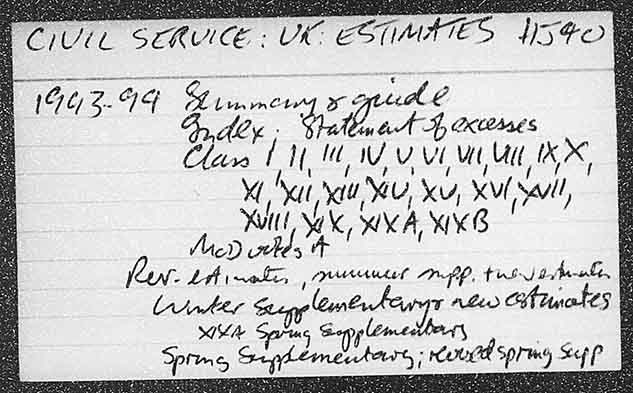 CIVIL SERVICE: UK: ESTIMATES HJ40
1993-94 Summary & guide
Index. Statement of excesses
Class I, II, III, IV, V, VI, VII, VIII, IX, X,
XI, XII, XIII, XIV, XV, XVI, XVII,
XVIII, XIX, XIXA, XIXB
MoD votes A
Rev. estimates, summer supp. + new estimates
Winter Supplementary & new estimates
XIXA Spring Supplementary
Spring Supplementary; revised spring supp